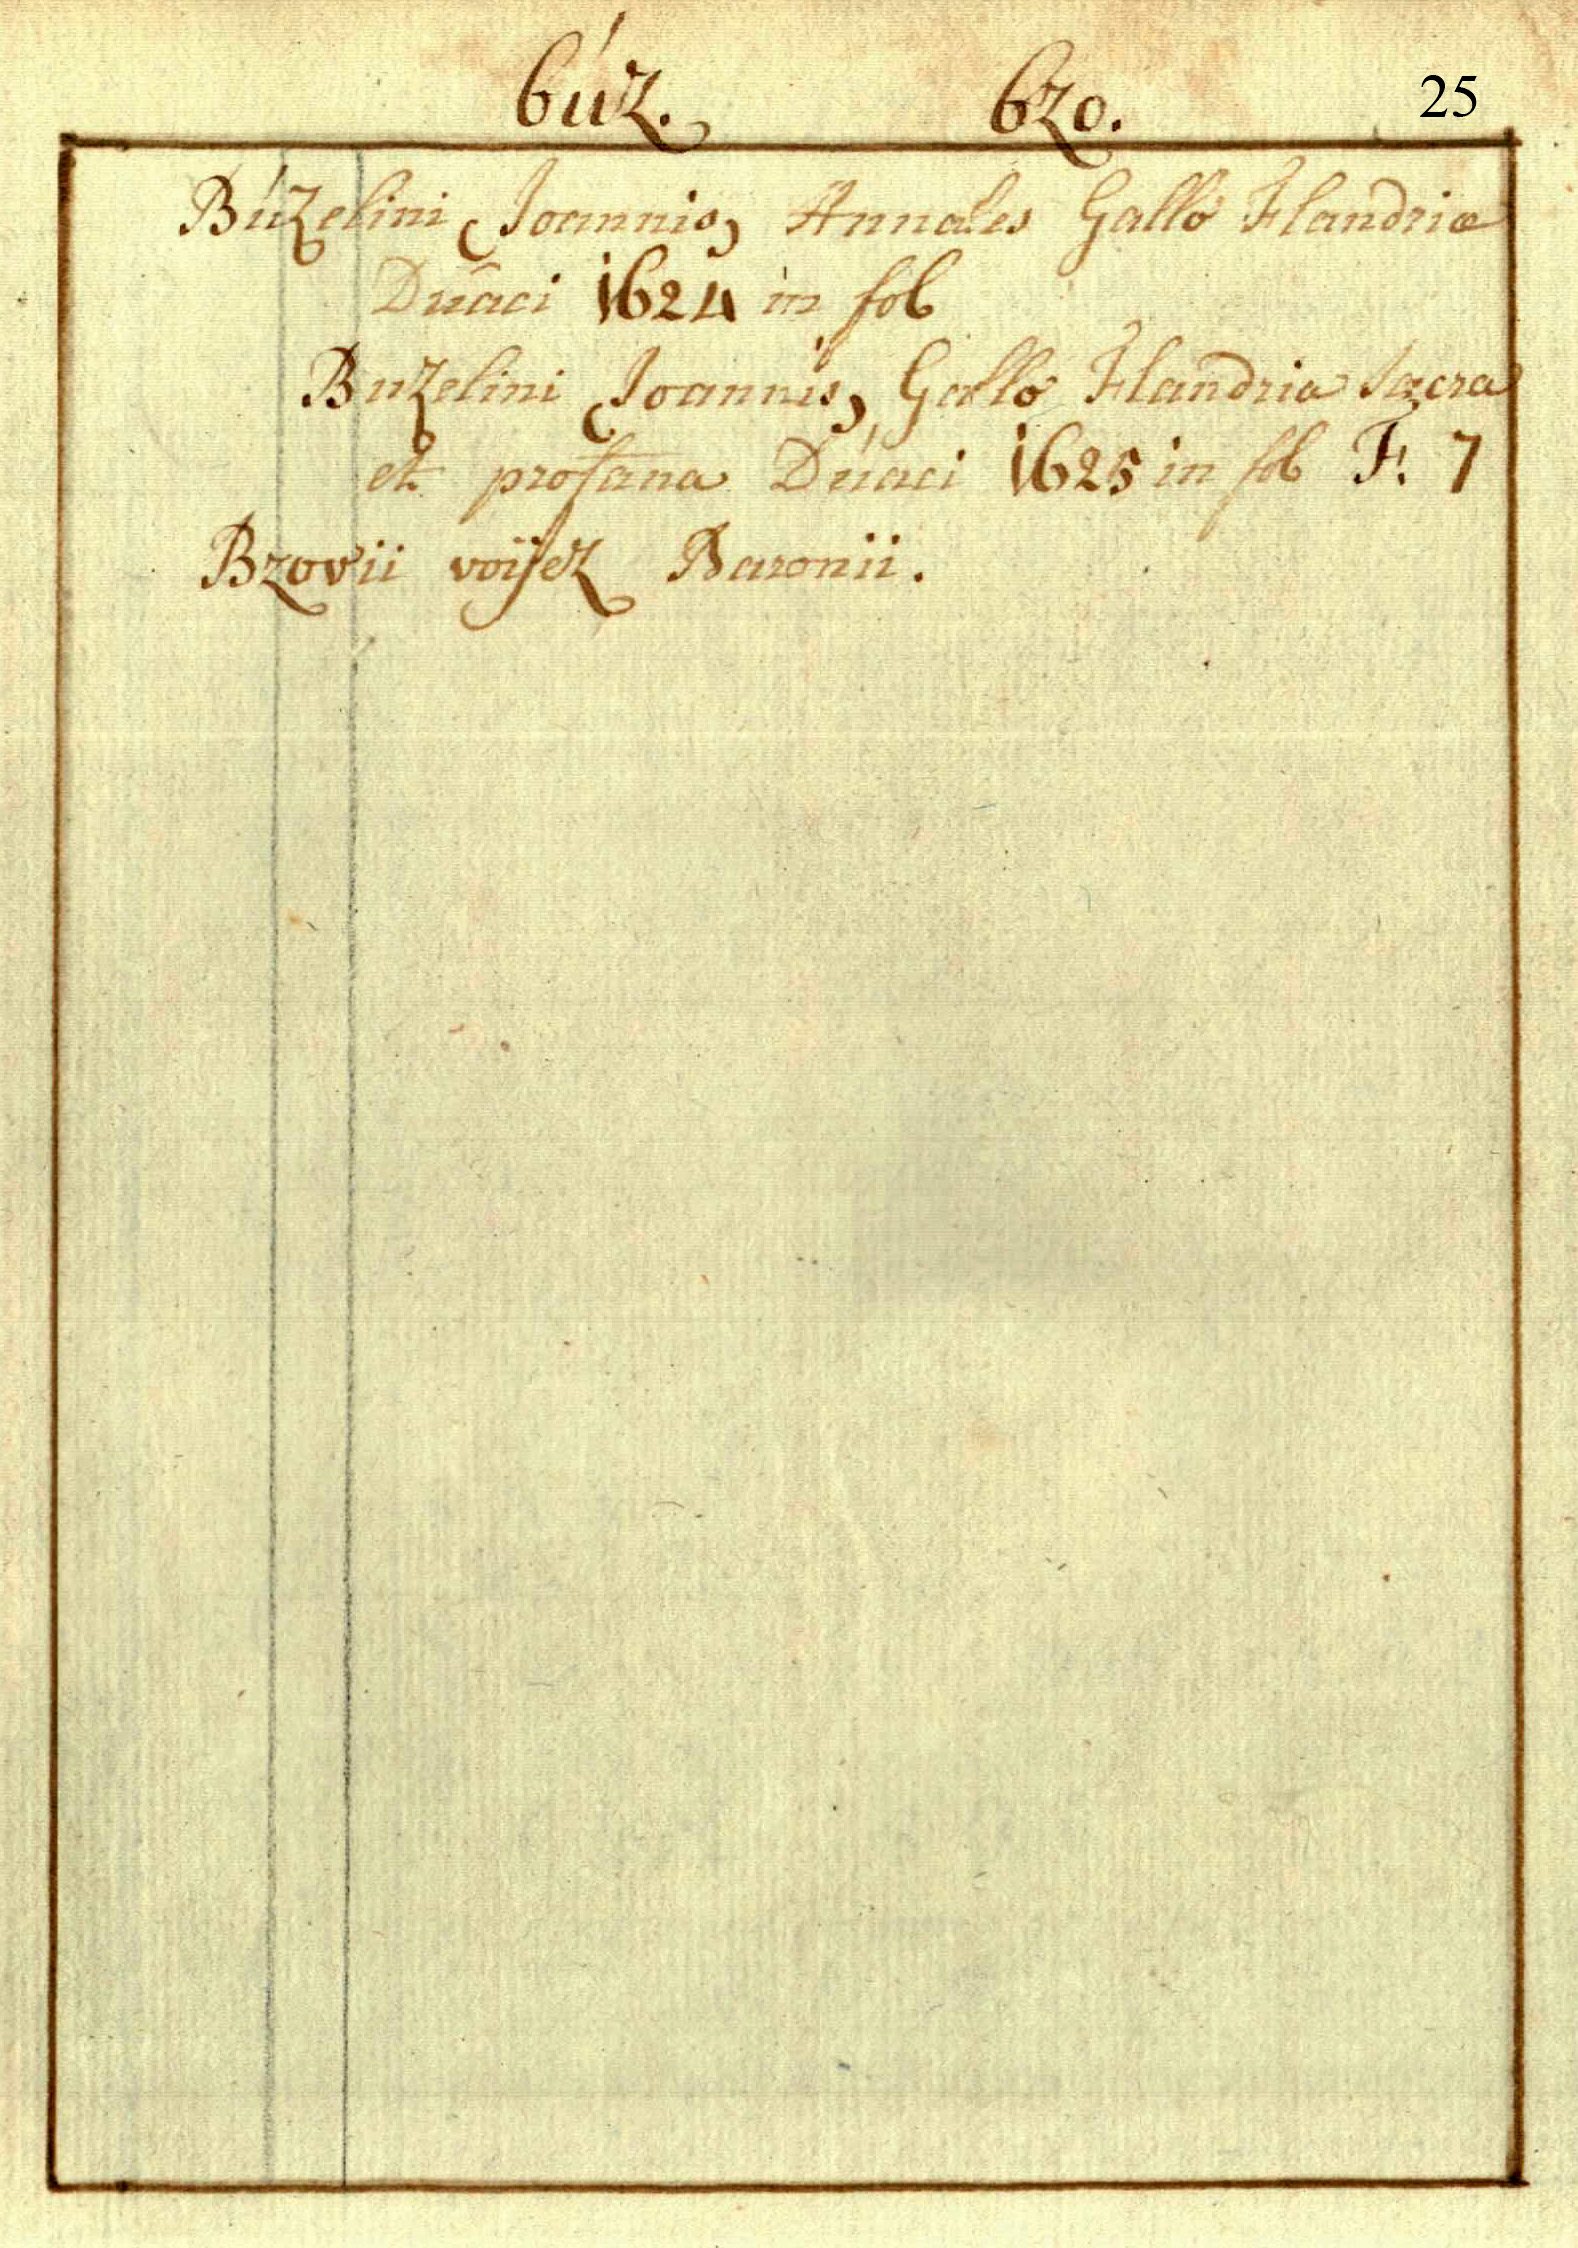 búz. bzo. 25
Búzelini Joannis, Annales Gallo Flandriæ
Duâci 1624 in fol
Buzelini Joannis, Gallo Flandria sacra
et profana Dúaci 1625 in fol F. 7
Bzovii voijez Baronii.